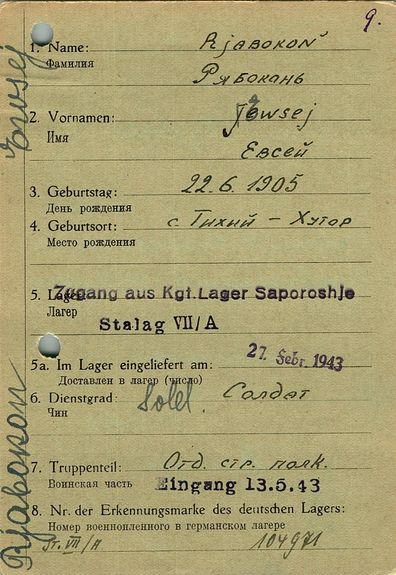 9.
1. Name: Rjabokoń
Фамилия Рябокань
2. Vornamen: Jewsej
Имя Евсей
3. Geburtstag: 22.6.1905
День рождения
4. Geburtsort: с. Тихий - Хутор
Место рождения
5. Lager: Zugang aus Kgf.Lager Saporoshje
Лагерь Stalag VII/A
5a. Im Lager eingeliefert am: 27. Febr. 1943
Доставлен в лагерь (число)
6. Dienstgrad: Sold. Солдат
Чин
7. Truppenteil: Отд. стр. полк.
Воинская часть Eingang 13.5.43
8. Nr. der Erkennungsmarke des deutschen Lagers:
Номер военнопленного в германском лагере
St. VII/A 104971
Rjabokon Ewsej